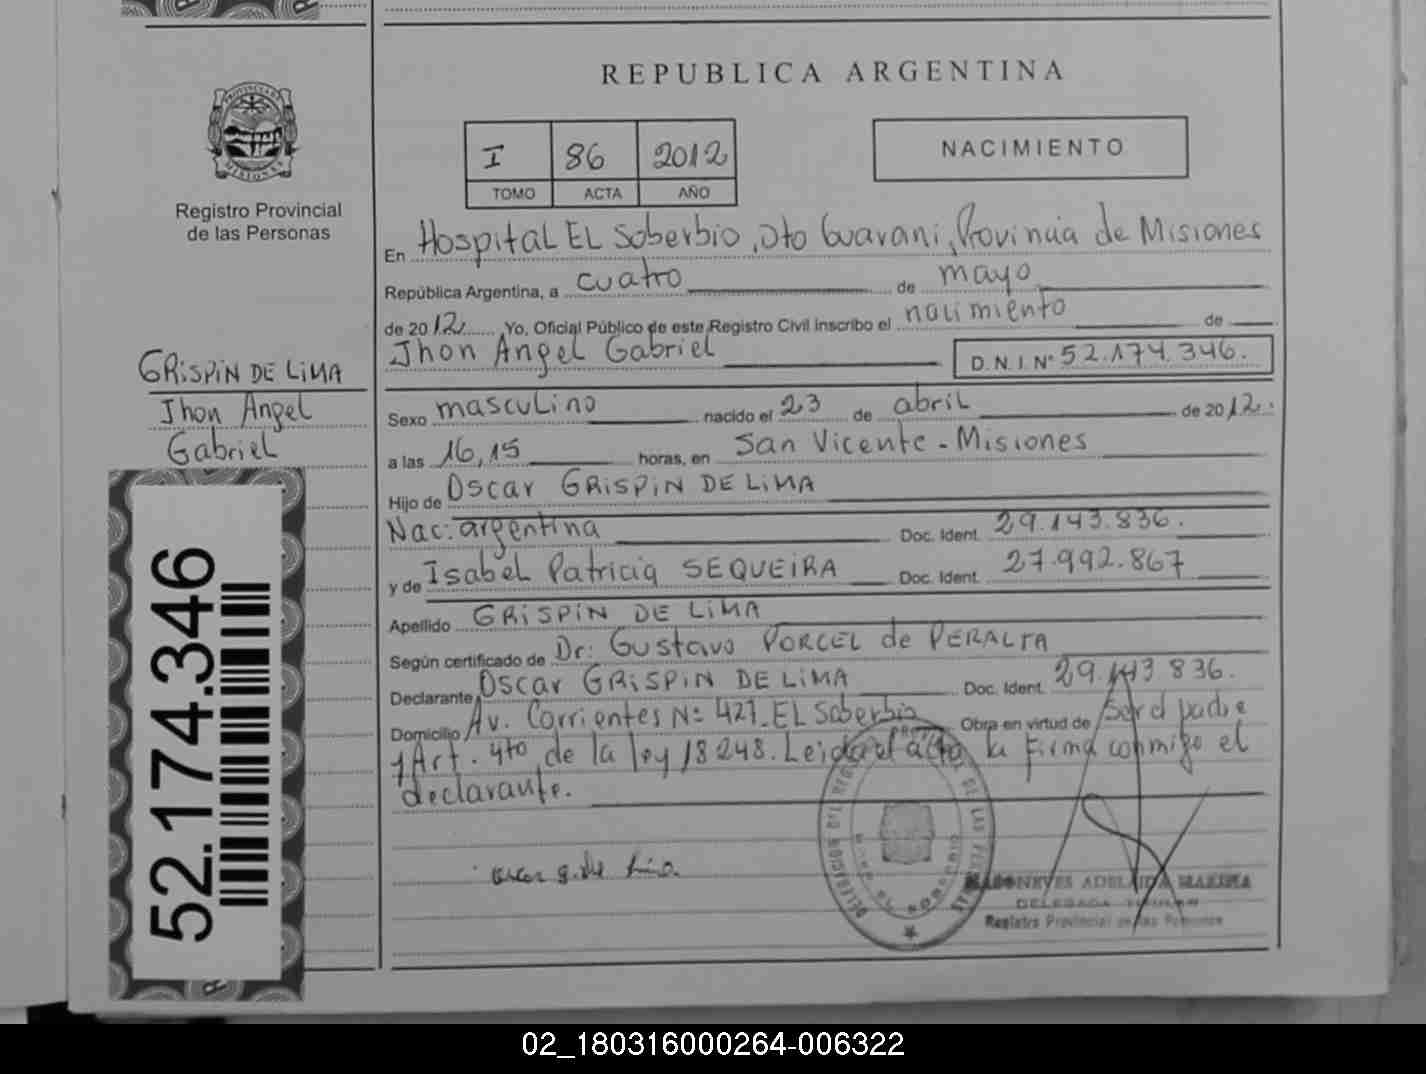 REPUBLICA ARGENTINA
PROVINCIA DE
MISIONES
Registro Provincial
de las Personas
I 86 2012
TOMO ACTA AÑO
NACIMIENTO
En Hospital EL Soberbio, Dto Guarani, Provincia de Misiones
República Argentina, a cuatro de mayo
de 2012 Yo, Oficial Público de este Registro Civil inscribo el nacimiento de
Jhon Angel Gabriel D.N.I. Nº 52.174.346.
GRISPIN DE LIMA
Jhon Angel
Gabriel
Sexo masculino nacido el 23 de abril de 2012.
a las 16,15 horas, en San Vicente - Misiones
Hijo de Oscar GRISPIN DE LIMA
Nac: argentina Doc. Ident. 29.143.836.
y de Isabel Patricia SEQUEIRA Doc. Ident. 27.992.867
Apellido GRISPIN DE LIMA
Según certificado de Dr: Gustavo PORCEL de PERALTA
Declarante Oscar GRISPIN DE LIMA Doc. Ident. 29.143 836.
Domicilio Av. Corrientes Nº 421. EL Soberbio Obra en virtud de ser el padre
y Art. 4to de la ley 18 248. Leida el acta la firma conmigo el
declarante.
52.174.346
ADELAIDA MARINA
DELEGADA TITULAR
Registro Provincial de las Personas
02_180316000264-006322